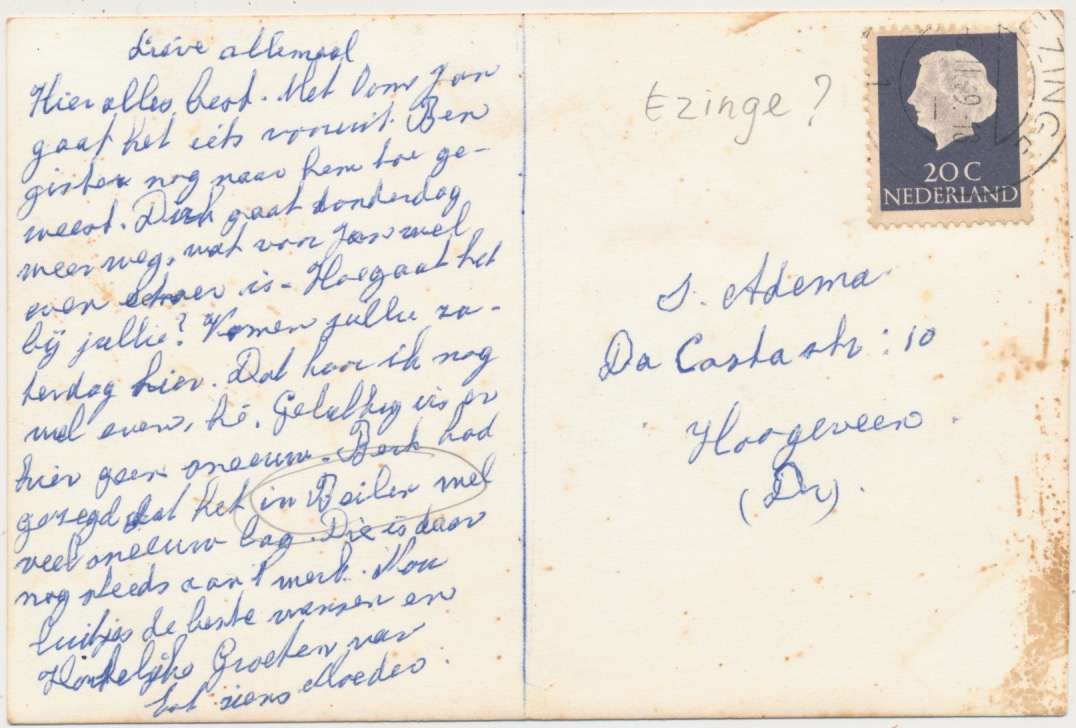 Lieve allemaal
Hier alles best. Met Oom Jan
gaat het iets vooruit. Ben
gister nog naar hem toe ge-
weest. Dirk gaat donderdag
weer weg, wat voor Jan wel
even is - Hoe gaat het
bij jullie? Komen jullie za-
terdag hier. Dat hoor ik nog
wel even, hè. Gelukkig is er
hier geen sneeuw. Berk had
gezegd dat het in Beilen wel
veel sneeuw lag. Die is daar
nog steeds aan 't werk. Nou
luitjes de beste wensen en
Hartelijke Groeten van
tot ziens Moeder.
Ezinge?
EZINGE
20 C
NEDERLAND
S. Adema
Da Costa str: 10
Hoogeveen.
(Dr).